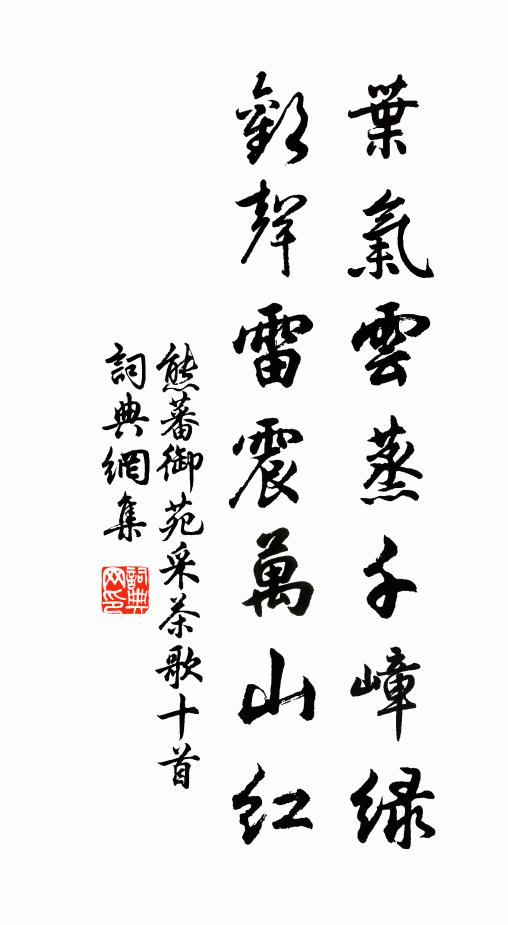 葉氣雲蒸千嶂綠
歡聲雷震萬山紅
熊蕃御苑采茶歌十首
詞典網集
詞典网印